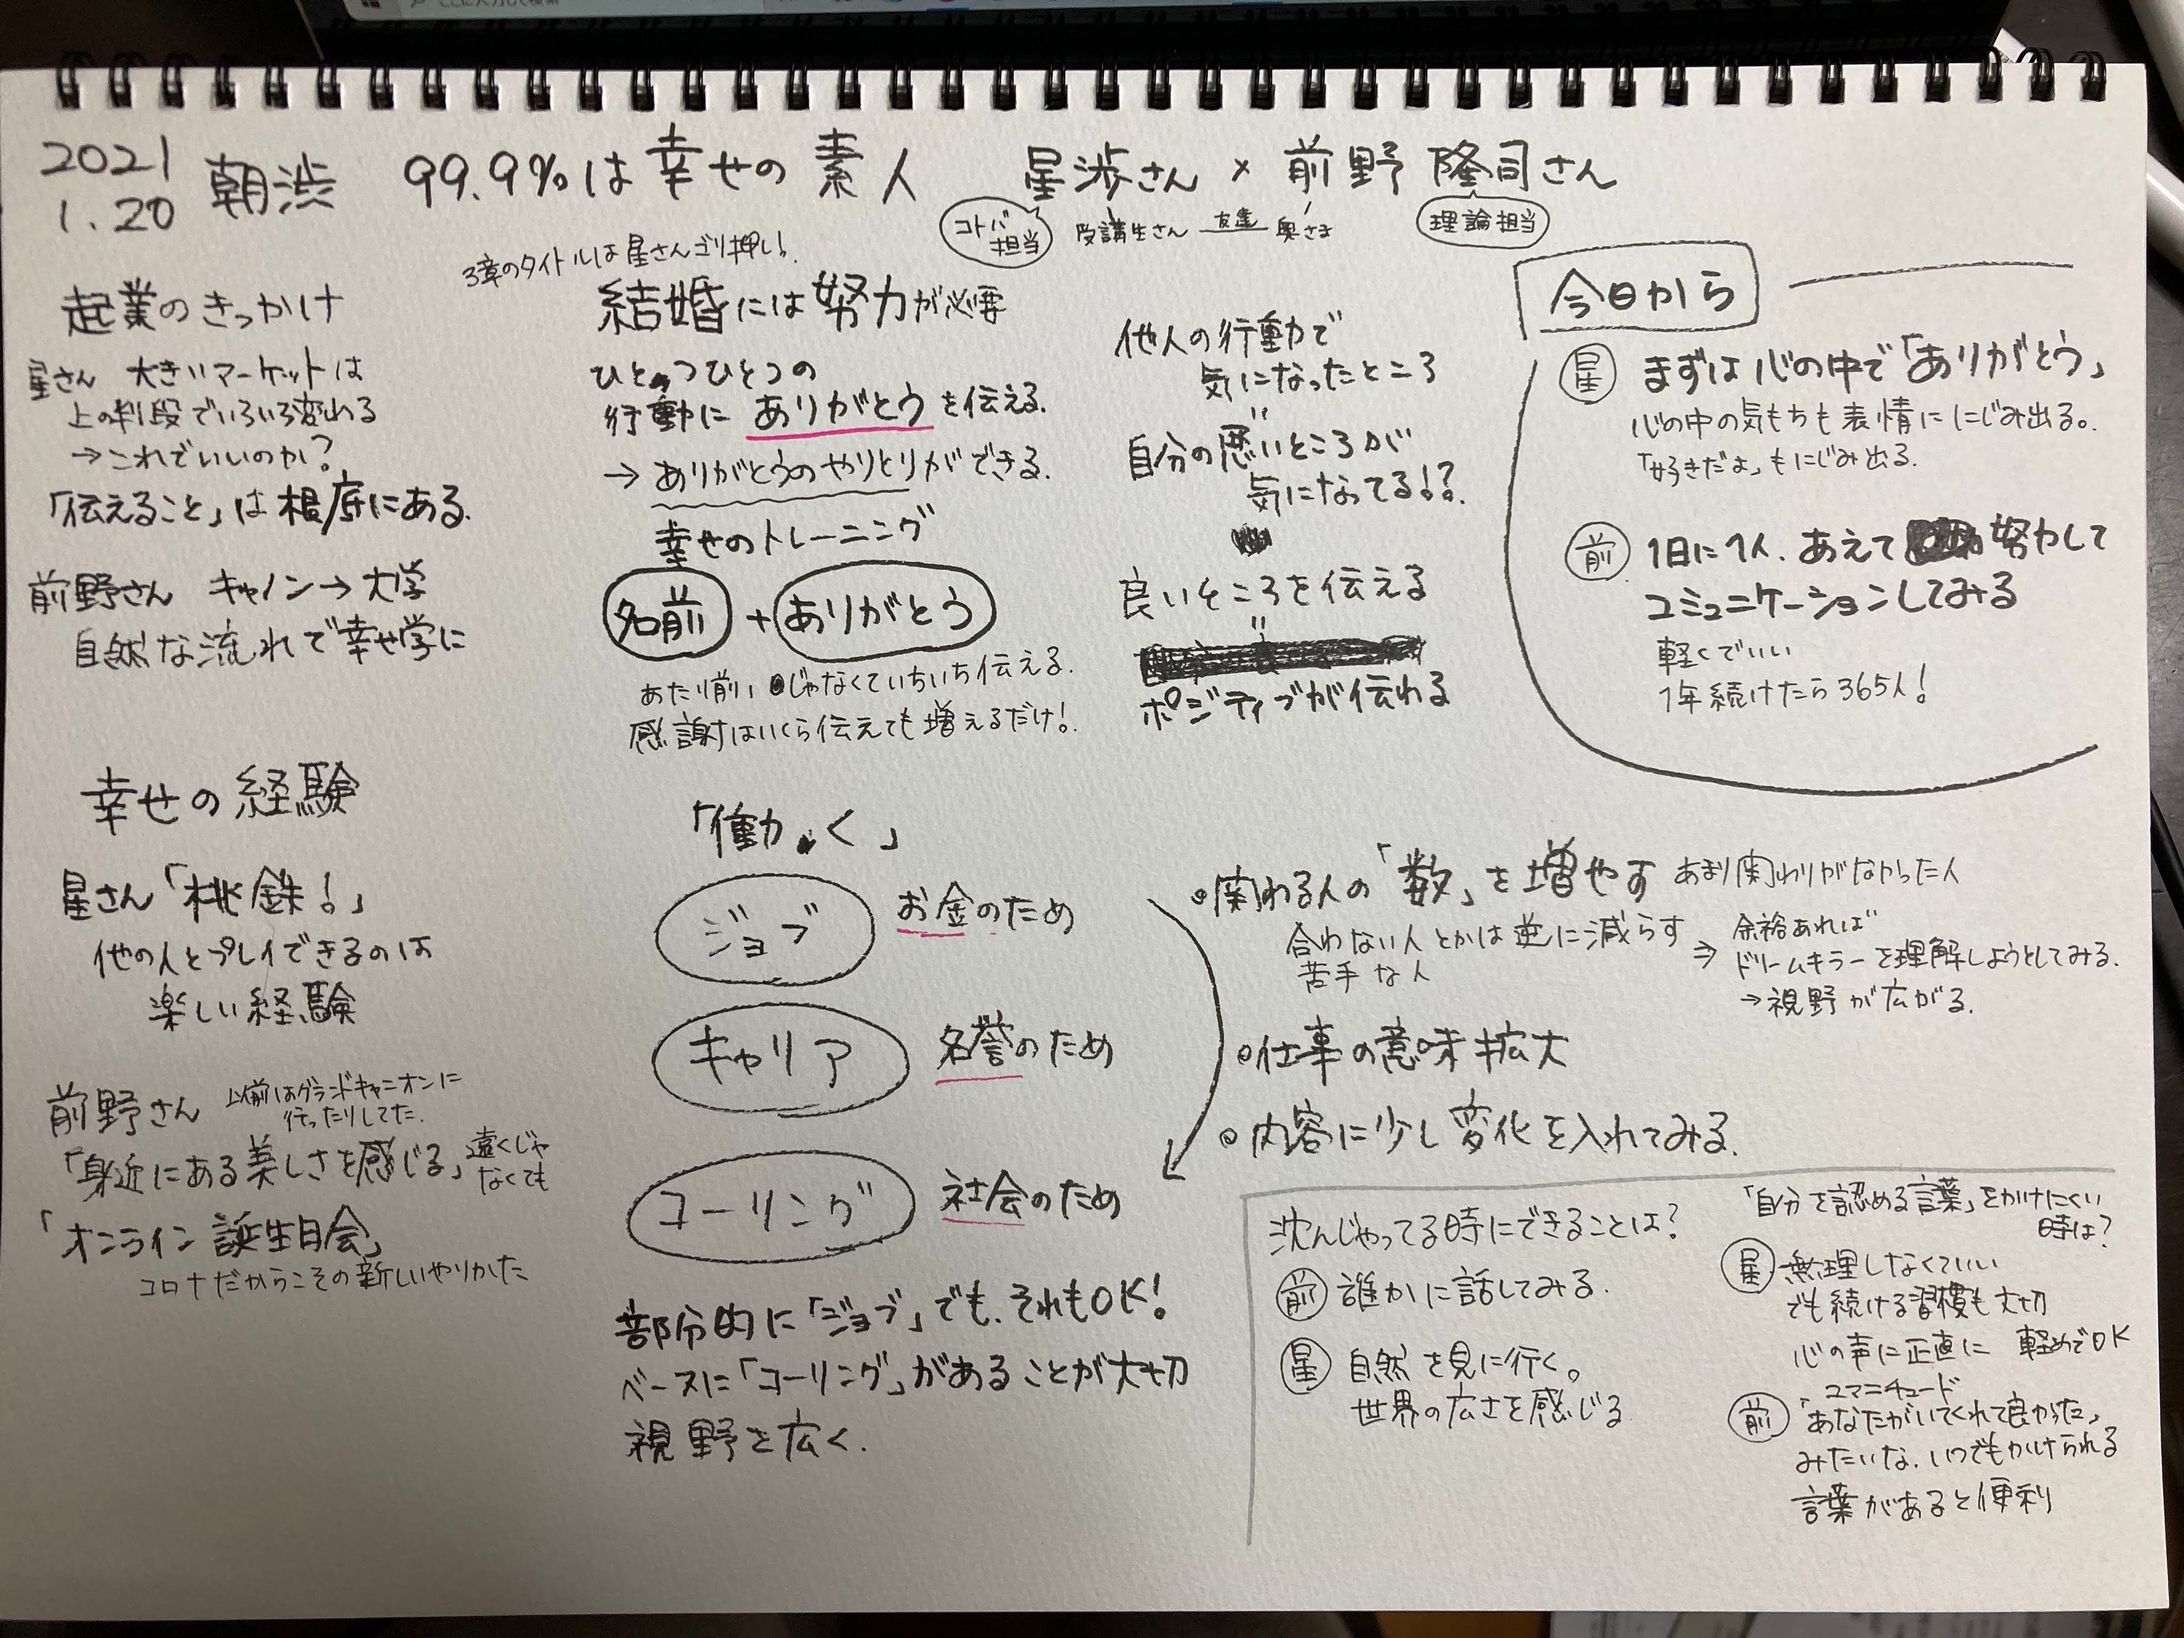 2021
1.20
朝渋 99.9%は幸せの素人 星渉さん × 前野隆司さん
コトバ
担当
受講生さん 友達 奥さま
理論担当
起業のきっかけ
星さん 大きいマーケットは
上の判段でいろいろ変わる
→これでいいのか?
「伝えること」は根底にある.
前野さん キャノン→大学
自然な流れで幸せ学に
幸せの経験
星さん「桃鉄!」
他の人とプレイできるのは
楽しい経験
前野さん
以前はグランドキャニオンに
行ったりしてた.
「身近にある美しさを感じる」
遠くじゃ
なくても
「オンライン誕生日会」
コロナだからこその新しいやりかた
3章のタイトルは星さんゴリ押し!
結婚には努力が必要
ひとつひとつの
行動にありがとうを伝える.
→ありがとうのやりとりができる.
幸せのトレーニング
名前+ありがとう
あたり前じゃなくていちいち伝える.
感謝はいくら伝えても増えるだけ!
他人の行動で
気になったところ
=
自分の悪いところが
気になってる!?
良いところを伝える
=
ポジティブが伝わる
今日から
星 まずは心の中で「ありがとう」
心の中の気もちも表情ににじみ出る。
「好きだよ」もにじみ出る.
前 1日に1人. あえて努力して
コミュニケーションしてみる
軽くでいい
1年続けたら365人!
「働く」
ジョブ お金のため
キャリア 名誉のため
コーリング 社会のため
部分的に「ジョブ」でも、それもOK!
ベースに「コーリング」があることが大切
視野を広く.
・関わる人の「数」を増やす あまり関わりがなかった人
合わない人とかは逆に減らす
苦手な人
⇒ 余裕あれば
ドリームキラーを理解しようとしてみる.
→視野が広がる.
・仕事の意味拡大
・内容に少し変化を入れてみる.
沈んじゃってる時にできることは?
前 誰かに話してみる.
星 自然を見に行く。
世界の広さを感じる
「自分を認める言葉」をかけにくい
時は?
星 無理しなくていい
でも続ける習慣も大切
心の声に正直に 軽めでOK
ユマニチュード
前 「あなたがいてくれて良かった」
みたいな、いつでもかけられる
言葉があると便利